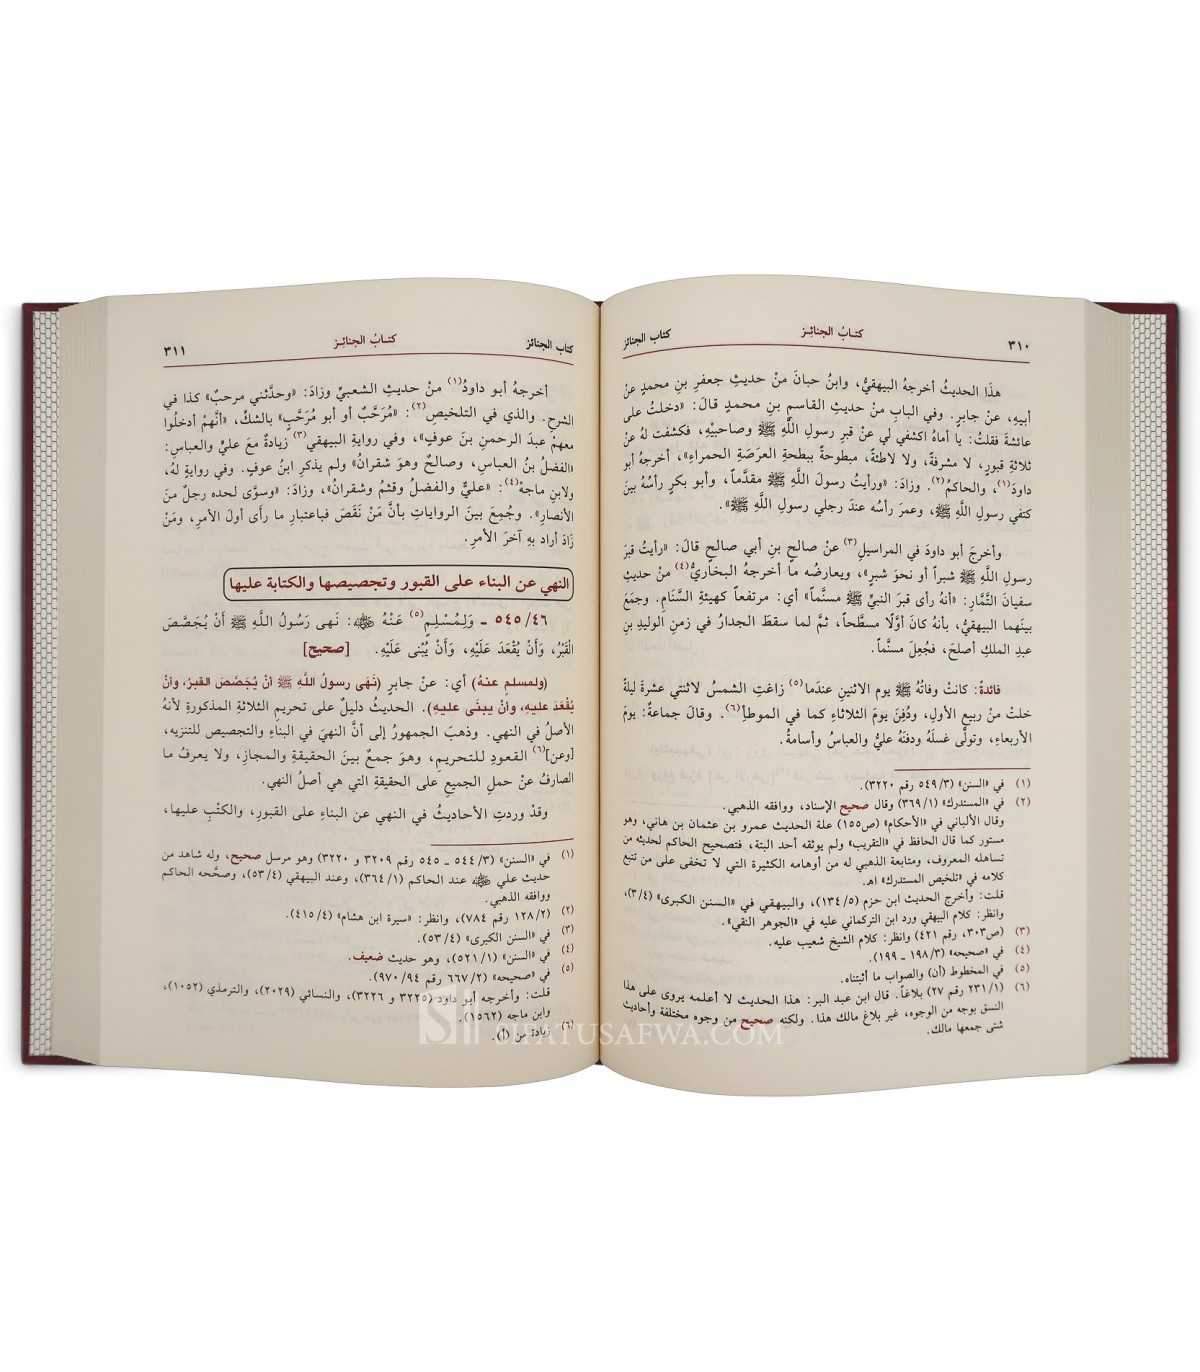 ٣١٠ كتاب الجنائز كتاب الجنائز
هذَا الحديثُ أخرجهُ البيهقيُّ، وابنُ حبانَ منْ حديثِ جعفرِ بنِ محمدٍ عنْ
أبيهِ، عنْ جابرٍ. وفي البابِ منْ حديثِ القاسمِ بنِ محمدٍ قالَ: «دخلتُ على
عائشةَ فقلتُ: يا أماهُ اكشفي لي عنْ قبرِ رسولِ اللَّهِ ﷺ وصاحبيْهِ، فكشفت لهُ عنْ
ثلاثةِ قبورٍ، لا مشرفةً، ولا لاطئةً، مبطوحةً ببطحةِ العرَصَةِ الحمراءِ»، أخرجهُ أبو
داودَ(١)، والحاكمُ(٢). وزادَ: «ورأيتُ رسولَ اللَّهِ ﷺ مقدَّماً، وأبو بكرٍ رأسُهُ بينَ
كتفي رسولِ اللَّهِ ﷺ، وعمرَ رأسُه عندَ رجلي رسولِ اللَّهِ ﷺ».
وأخرجَ أبو داودَ في المراسيلِ(٣) عنْ صالحِ بنِ أبي صالحٍ قالَ: «رأيتُ قبرَ
رسولِ اللَّهِ ﷺ شبراً أو نحوَ شبرٍ»، ويعارضُه ما أخرجهُ البخاريُّ(٤) منْ حديثِ
سفيانَ التَّمَّارِ: «أنهُ رأى قبرَ النبيِّ ﷺ مسنَّماً» أي: مرتفعاً كهيئةِ السَّنَامِ. وجمعَ
بينَهما البيهقيُّ، بأنهُ كانَ أوَّلًا مسطَّحاً، ثمَّ لما سقطَ الجدارُ في زمنِ الوليدِ بنِ
عبدِ الملكِ أصلحَ، فجُعِلَ مسنَّماً.
فائدةٌ: كانتْ وفاتُهُ ﷺ يوم الاثنينِ عندَما(٥) زاغتِ الشمسُ لاثنتي عشرةَ ليلةً
خلتْ منْ ربيعِ الأولِ، ودُفِنَ يومَ الثلاثاءِ كما في الموطأِ(٦). وقالَ جماعةٌ: يومَ
الأربعاءِ، وتولَّى غسلَهُ ودفنَهُ عليُّ والعباسُ وأسامةُ.
(١) في «السنن» (٥٤٩/٣ رقم ٣٢٢٠).
(٢) في «المستدرك» (٣٦٩/١) وقال صحيح الإسناد، ووافقه الذهبي.
وقال الألباني في «الأحكام» (ص١٥٥) علة الحديث عمرو بن عثمان بن هاني، وهو
مستور كما قال الحافظ في «التقريب» ولم يوثقه أحد البتة، فتصحيح الحاكم لحديثه من
تساهله المعروف، ومتابعة الذهبي له من أوهامه الكثيرة التي لا تخفى على من تتبع
كلامه في «تلخيص المستدرك» اهـ.
قلت: وأخرج الحديث ابن حزم (١٣٤/٥)، والبيهقي في «السنن الكبرى» (٣/٤)،
وانظر: كلام البيهقي ورد ابن التركماني عليه في «الجوهر النقي».
(٣) (ص٣٠٣، رقم ٤٢١) وانظر: كلام الشيخ شعيب عليه.
(٤) في «صحيحه» (١٩٨/٣ ـ ١٩٩).
(٥) في المخطوط (أن) والصواب ما أثبتناه.
(٦) (٢٣١/١ رقم ٢٧) بلاغاً. قال ابن عبد البر: هذا الحديث لا أعلمه يروى على هذا
النسق بوجه من الوجوه، غير بلاغ مالك هذا. ولكنه صحيح من وجوه مختلفة وأحاديث
شتى جمعها مالك.
كتاب الجنائز كتاب الجنائز ٣١١
أخرجهُ أبو داودَ(١) منْ حديثِ الشعبيِّ وزادَ: «وحدَّثني مرحبٌ» كذا في
الشرحِ. والذي في التلخيصِ(٢): «مُرَحَّبٌ أو أبو مُرَحَّبٍ» بالشكِّ، «أنَّهمْ أدخلُوا
معهمْ عبدَ الرحمنِ بنَ عوفٍ»، وفي روايةِ البيهقي(٣) زيادةُ معَ عليٍّ والعباسِ:
«الفضلُ بنُ العباسِ، وصالحٌ وهوَ شقرانُ» ولم يذكرِ ابنُ عوفٍ. وفي روايةٍ لهُ،
ولابنِ ماجهْ(٤): «عليٌّ والفضلُ وقثمُ وشقرانُ»، وزادَ: «وسوَّى لحده رجلٌ منَ
الأنصارِ». وجُمِعَ بينَ الرواياتِ بأنَّ مَنْ نَقَصَ فباعتبارِ ما رأَى أولَ الأمرِ، ومَنْ
زَادَ أراد بهِ آخرَ الأمرِ.
النهي عن البناء على القبور وتجصيصها والكتابة عليها
٥٤٥/٤٦ ـ وَلِمُسْلِمٍ(٥) عَنْهُ ﷺ: نَهى رَسُولُ اللَّهِ ﷺ أَنْ يُجَصَّصَ
الْقَبْرُ، وَأَنْ يُقْعَدَ عَلَيْهِ، وَأَنْ يُبْنَى عَلَيْهِ. [صحيح]
(ولمسلمٍ عنهُ) أي: عنْ جابرٍ (نَهَى رسولُ اللَّهِ ﷺ أنْ يُجَصَّصَ القبرُ، وأنْ
يُقْعَدَ عليهِ، وأنْ يبنَى عليهِ). الحديثُ دليلٌ على تحريمِ الثلاثةِ المذكورةِ لأنهُ
الأصلُ في النهي. وذهبَ الجمهورُ إلى أنَّ النهيَ في البناءِ والتجصيصِ للتنزيه،
[وعن](٦) القعودِ للتحريمِ، وهوَ جمعٌ بينَ الحقيقةِ والمجازِ، ولا يعرفُ ما
الصارفُ عنْ حملِ الجميعِ على الحقيقةِ التي هي أصلُ النهي.
وقدْ وردتِ الأحاديثُ في النهي عنِ البناءِ على القبورِ، والكتْبِ عليها،
(١) في «السنن» (٥٤٤/٣ ـ ٥٤٥ رقم ٣٢٠٩ و ٣٢٢٠) وهو مرسل صحيح، وله شاهد من
حديث علي عند الحاكم (٣٦٤/١)، وعند البيهقي (٥٣/٤)، وصحَّحه الحاكم
ووافقه الذهبي.
(٢) (١٢٨/٢ رقم ٧٨٤)، وانظر: «سيرة ابن هشام» (٤١٥/٤).
(٣) في «السنن الكبرى» (٥٣/٤).
(٤) في «السنن» (٥٢١/١)، وهو حديث ضعيف.
(٥) في «صحيحه» (٦٦٧/٢ رقم ٩٧٠/٩٤).
قلت: وأخرجه أبو داود (٣٢٢٥ و ٣٢٢٦)، والنسائي (٢٠٢٩)، والترمذي (١٠٥٢)،
وابن ماجه (١٥٦٢).
(٦) زيادة من (أ).
SIFATUSAFWA.COM